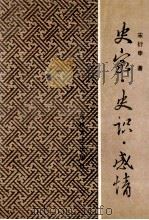 宋衍申 著
史家·史识·感情